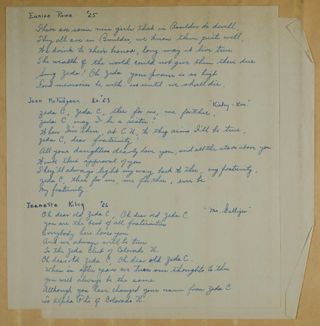 Eunice Rowe '25
There are some nice girls that in Boulder do dwell,
They all are in Boulder, we know them quite well,
So drink to their honor, long may it live true
The wealth of the world could not give them their due
Sing Zeda! Oh Zeda your praise is so high
And memories be with us until we shall die.
Jean McFadgean Ex '23
"Kinky-Koo"
Zeda C, Zeda C, thee for me, me for thee,
Zeda C, may I be a sister?
When I'm there, at C. U. to thy aims I'll be true,
Zeda C, dear fraternity.
All your daughters dearly love you, and all the stars above you
too approval of you.
They'll always light my way back to thee, my fraternity,
Zeda C, thee for me, me for thee, ever be
My fraternity.
Jeanetta Kiley '26
Oh dear old Zeda C, Oh dear old Zeda C
"Mr. Gallagher"
you are the best of all fraternities
Everybody here loves you
And we always will be true
To the Zeda Club of Colorado U.
Oh dear old Zeda C, Oh dear old Zeda C.
When in after years we turn our thoughts to thee
you will always be the same
Although you have changed your name from Zeda C
To Alpha Phi of Colorado U.